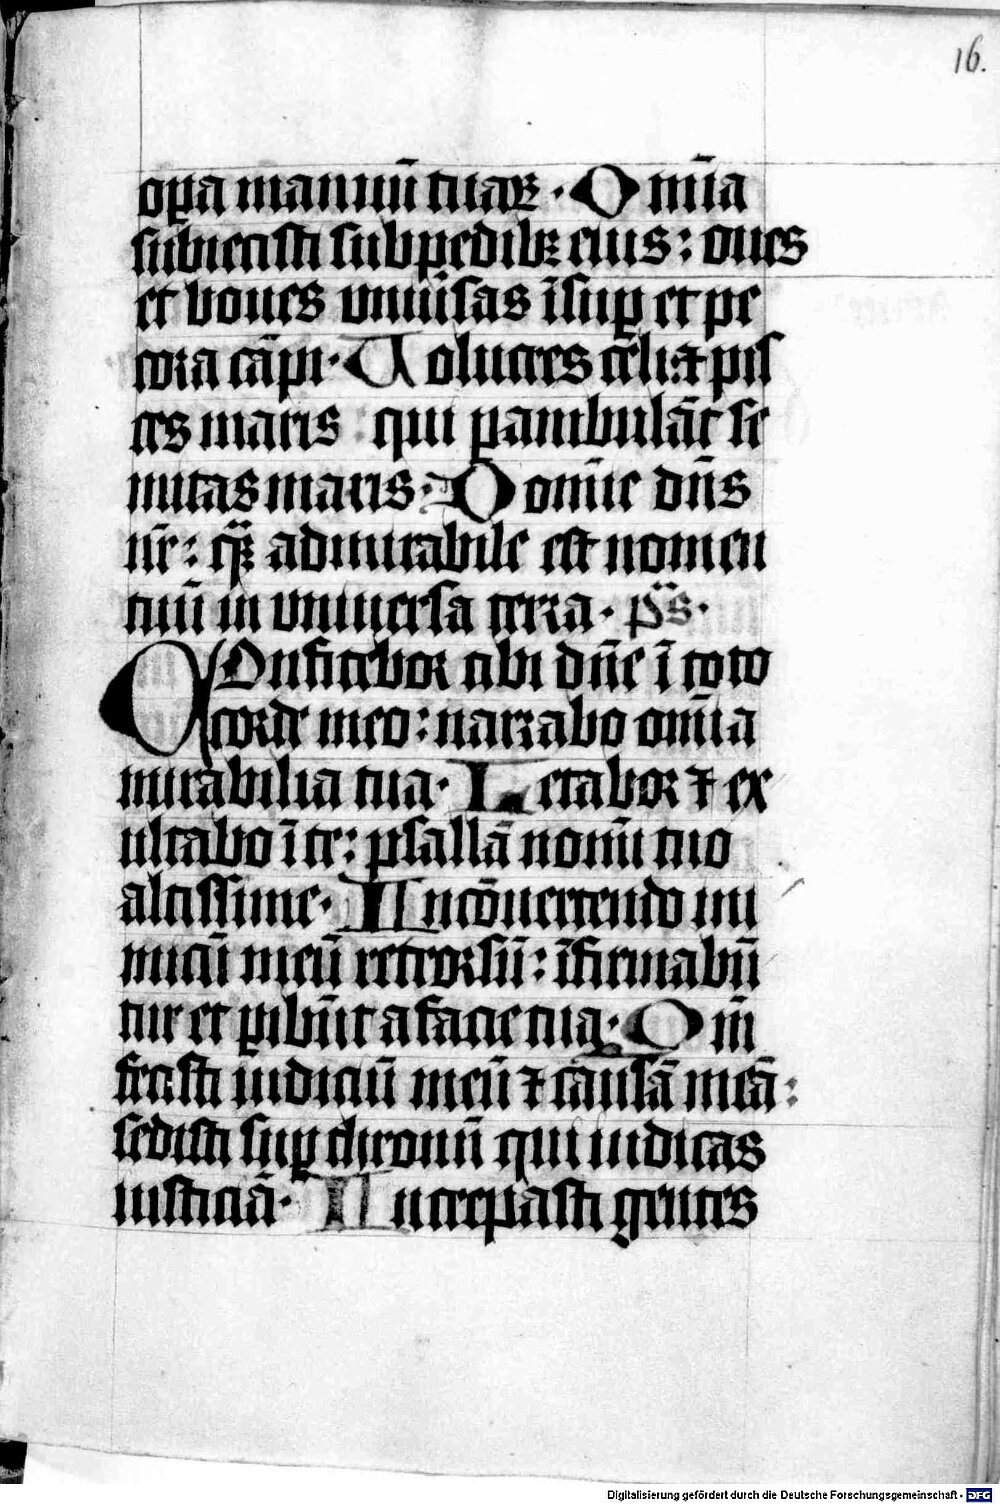 16.
oꝑa manuū tuaꝝ. Om̄ia
subiecisti sub pedibꝫ eius: oues
et boues vniūsas ī suꝑ et pe
cora cāpi. Uolucres celi: ⁊ pis
ces maris: qui ꝑambulāt se
mitas maris. Domīe dn̄s
nr̄: qͣꝫ admirabile est nomen
tuū in vniuersa terra. ps.
COnfitebor tibi dn̄e ī toto
corde meo: narrabo om̄ia
mirabilia tua. Letabor ⁊ ex
ultabo ī te: psallā nomī tuo
altissime. In cōuertendo ini
micū meū retrorsū: īfirmabū
tur et ꝑibūt a facie tua. Qm̄
fecisti iudiciū meū ⁊ causā meā:
sedisti suꝑ thronū qui iudicas
iusticiā. Increpasti gentes
Digitalisierung gefördert durch die Deutsche Forschungsgemeinschaft - DFG